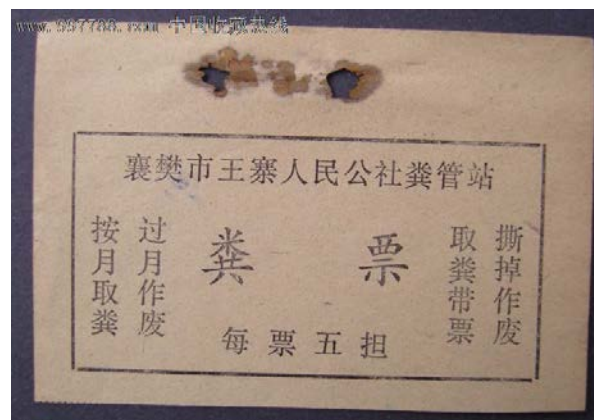 www.997788.com 中国收藏热线
襄樊市王寨人民公社粪管站
按月取粪
过月作废
粪票
取粪带票
撕掉作废
每票五担